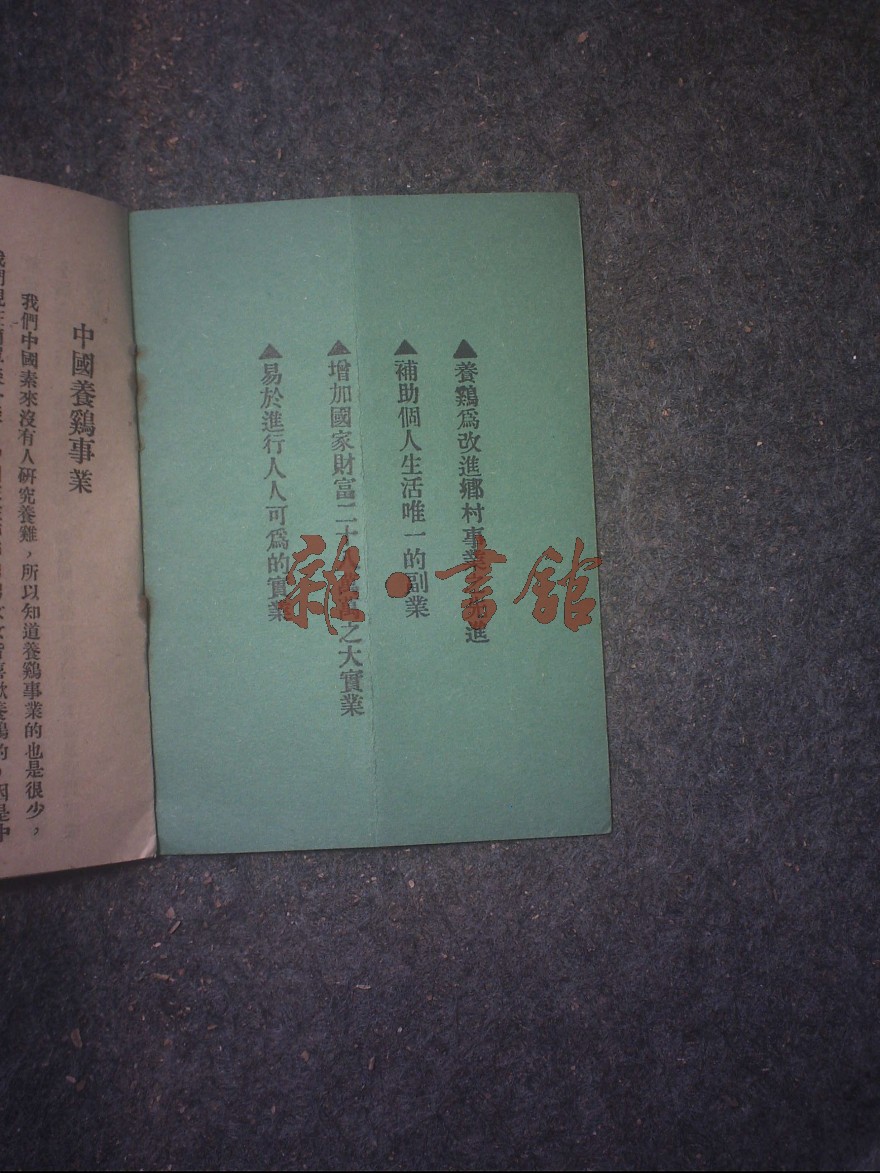 ▲養鷄爲改進鄉村事業之先進
▲補助個人生活唯一的副業
▲增加國家財富二十之大實業
▲易於進行人人可爲的實業
雜·書館
中國養鷄事業
我們中國素來沒有人硏究養雞，所以知道養鷄事業的也是很少，